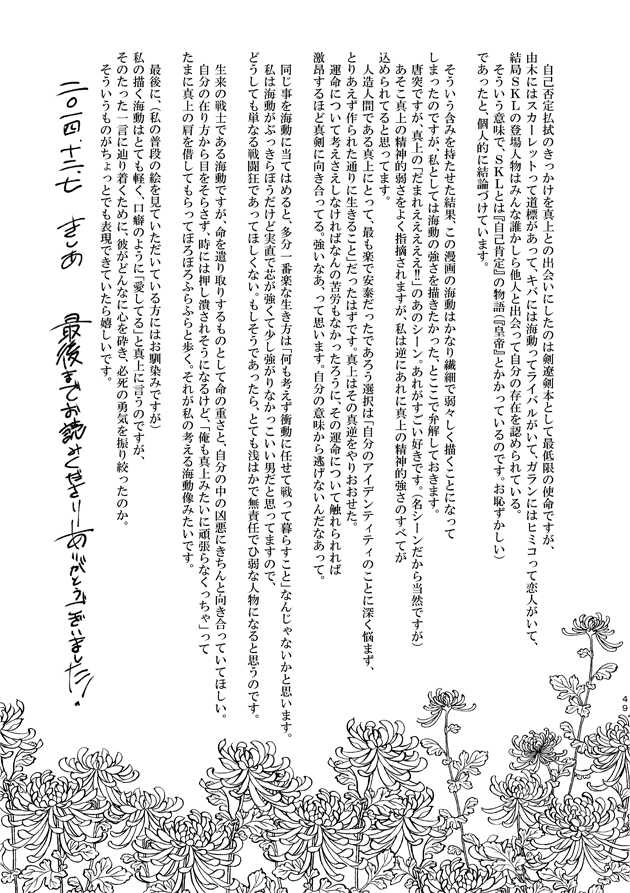 自己否定払拭のきっかけを真上との出会いにしたのは剣遼剣本として最低限の使命ですが、
由木にはスカーレットって道標があって、キバには海動ってライバルがいて、ガランにはヒミコって恋人がいて、
結局SKLの登場人物はみんな誰かしら他人と出会って自分の存在を認められている。
そういう意味で、SKLとは『自己肯定』の物語（『皇帝』とかかっているのです。お恥ずかしい）
であったと、個人的に結論づけています。
そういう含みを持たせた結果、この漫画の海動はかなり繊細で弱々しく描くことになって
しまったのですが、私としては海動の強さを描きたかった、とここで弁解しておきます。
唐突ですが、真上の「だまれえええええ!!」のあのシーン。あれがすごい好きです。（名シーンだから当然ですが）
あそこ真上の精神的弱さをよく指摘されますが、私は逆にあれに真上の精神的強さのすべてが
込められてると思ってます。
人造人間である真上にとって、最も楽で安泰だったであろう選択は「自分のアイデンティティのことに深く悩まず、
とりあえず作られた通りに生きること」だったはずです。真上はその真逆をやりおおせた。
運命について考えさえしなければなんの苦労もなかったろうに、その運命について触れられれば
激昂するほど真剣に向き合ってる。強いなあ、って思います。自分の意味から逃げないんだなあって。
同じ事を海動に当てはめると、多分一番楽な生き方は「何も考えず衝動に任せて戦って暮らすこと」なんじゃないかと思います。
私は海動がぶっきらぼうだけど実直で芯が強くて少し強がりなかっこいい男だと思ってますので、
どうしても単なる戦闘狂であってほしくない。もしそうであったら、とても浅はかで無責任でひ弱な人物になると思うのです。
生来の戦士である海動ですが、命を遣り取りするものとして命の重さと、自分の中の凶悪にきちんと向き合っていてほしい。
自分の在り方から目をそらさず、時には押し潰されそうになるけど、「俺も真上みたいに頑張らなくっちゃ」って
たまに真上の肩を借してもらってぼろぼろふらふらと歩く。それが私の考える海動像みたいです。
最後に、（私の普段の絵を見ていただいている方にはお馴染みですが）
私の描く海動はとても軽く、口癖のように『愛してる』と真上に言うのですが、
そのたった一言に辿り着くために、彼がどんなに心を砕き、必死の勇気を振り絞ったのか。
そういうものがちょっとでも表現できていたら嬉しいです。
二〇一四、十二、七 きしあ
最後までお読みくださりありがとうございました！
49